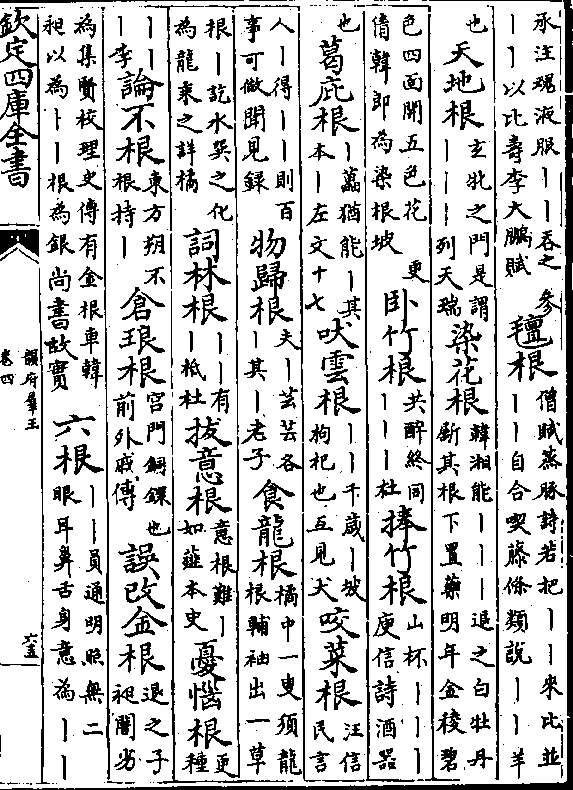 承注魂液服丨丨吞之　參
丨丨以比壽李大鵬賦
氊根
僧賦蒸豚詩若把丨丨來比並
丨丨自合喫藤條類說丨丨羊
也
天地根
玄牝之門是謂
丨丨丨列天瑞
染花根
韓湘能丨丨丨退之白牡丹
斷其根下置藥明年金棱碧
色四面開五色花　更
倩韓即為染根坡
卧竹根
共醉終同
丨丨丨杜
捧竹根
山杯丨丨丨
庾信詩酒器
也
葛庇根
丨藟猶能丨其
本丨左文十七
吠雲根
丨丨千歲丨坡
枸杞也互見犬
咬菜根
汪信
民言
人丨得丨丨則百
事可做聞見録
物歸根
夫丨芸芸各
丨其丨老子
食龍根
橘中一叟須龍
根輔袖出一草
根丨訖水噀之化
為龍乗之詳橘
詞林根
丨丨有
丨柢杜
拔意根
意根難丨
如薤本史
憂惱根
更
種
丨丨丨
丨李
論不根
東方朔不
根持丨
倉琅根
宮門銅鍰也
前外戚傳
誤改金根
退之子
昶闇劣
為集賢校理史傳有金根車韓
昶以為丨丨根為銀尚書故實
六根
丨丨員通明照無二
眼耳鼻舌身意為丨丨
欽定四庫全書
韻府羣玉
卷四
六五